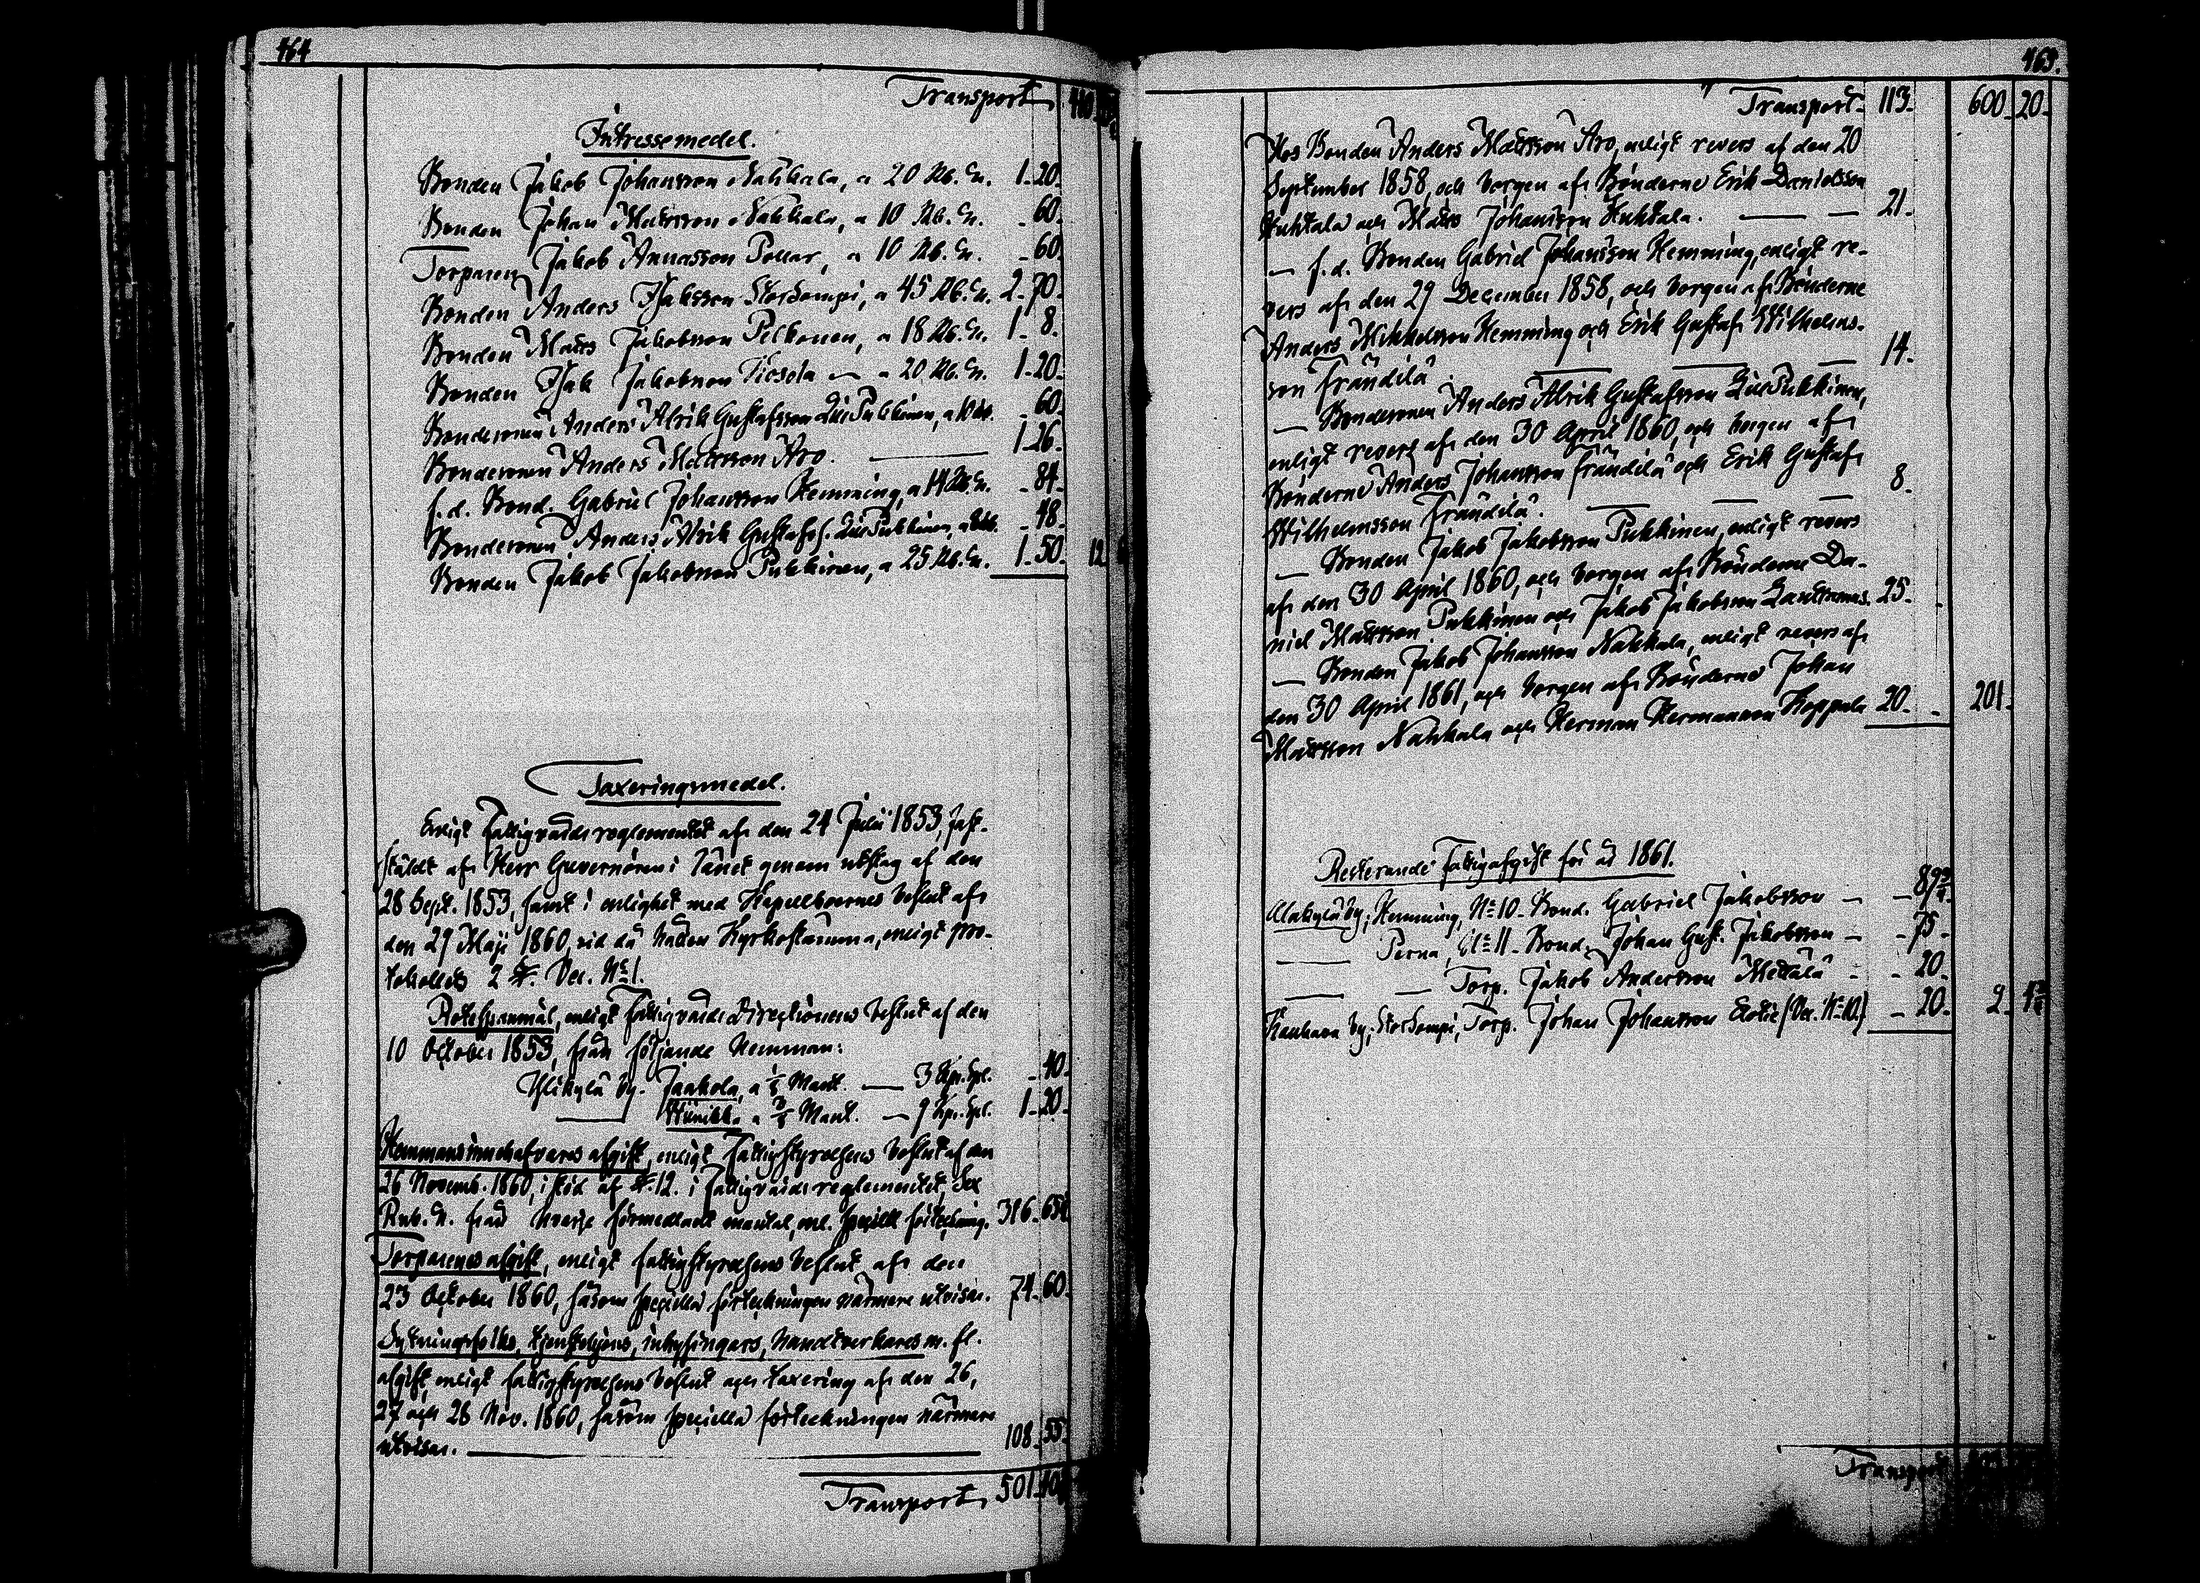 464
Transport
Intressemedel.
Bonden Jakob Johansson Nahkala, a 20 Rb. Sr. 1. 20.
Bonden Johan Mattsson Nahkala, a 10 Rb. Sr. - 60.
Torparen Jakob Annasson Pollar, a 10 Rb. Sr. - 60.
Bonden Anders Isaksson Storsompi, a 45 Rb. Sr. 2. 70.
Bonden Matts Jakobsson Pelkonen, a 18 Rb. Sr. 1. 8.
Bonden Isak Jakobsson — a 20 Rb. Sr. 1. 20.
Bondesonen Anders Alrik Gustafsson LillPukkinen, a 10 - 60.
Bondesonen Anders Mattsson Aro. — 1. 26.
f. d. Bond. Gabriel Johansson Hemming, a 14 Rb. Sr. - 84.
Bondesonen Anders Alrik Gustafss. LillPukkinen, a - 48.
Bonden Jakob Jakobsson Pukkinen, a 25 Rb. Sr. 1. 50. 12
Taxeringsmedel.
Enligt Fattigvårdsreglementet af den 24 Juni 1853, fast-
stäldt af Herr Guvernören i länet genom utslag af den
28 Sept. 1853, samt i enlighet med Kapellboernes beslut af
den 29 Maji 1860, vid då hållen Kyrkostämma, enligt pro-
tokollets 2 §. Ver. N:o 1.
Rotefspanmål, enligt Fattigvårds Directionens beslut af den
10 October 1853, från följande Hemman:
Ylikylä by. Jaakola, a Mant. — 3 Kpr. Spl. - 40.
— a Mant. — 9 Kpr. Spl. 1. 20.
Hemmansinnehafvares afgift, enligt Fattigstyrelsens beslut af den
26 Novemb. 1860, i stöd af §. 12. i Fattigvårds reglementet, Sex
Rub. Sr. från hvarje förmedladt mantal, enl. speciell förteckning. 316. 65
Torparenes afgift, enligt fattigstyrelsens beslut af den
23 October 1860, såsom speciella förteckningen närmare utvisar. 74. 60.
Sytningsfolks, tjenstehjons, inhysingars, handtverkares m. fl.
afgift, enligt fattigstyrelsens beslut och taxering af den 26,
27 och 28 Nov. 1860, såsom speciella förteckningen närmare
utvisar. — 108. 55.
Transport 501. 40
465.
Transport. 113. 600. 20.
Hos Bonden Anders Mattsson Aro, enligt revers af den 20
September 1858, och borgen af Bönderne Erik Danielsson
Huhtala och Matts Johansson Huhtala. — — 21.
— f. d. Bonden Gabriel Johansson Hemming, enligt re-
vers af den 29 December 1858, och borgen af Bönderne
Anders Mikkelsson Hemming och Erik Gustaf Wilhelms-
son Frändilä. — — — 14.
— Bondesonen Anders Alrik Gustafsson LillPukkinen,
enligt revers af den 30 April 1860, och borgen af
Bönderne Anders Johansson Frändilä och Erik Gustaf
Wilhelmsson Frändilä. — — — 8.
— Bonden Jakob Jakobsson Pukkinen, enligt revers
af den 30 April 1860, och borgen af Bönderne Da-
niel Mattsson Pukkinen och Jakob Jakobsson 25.
— Bonden Jakob Johansson Nahkala, enligt revers af
den 30 April 1861, och borgen af Bönderne Johan
Mattsson Nahkala och Herman Hermansson Koppala 20. 201.
Resterande Fattigafgift för år 1861.
Alakylä by; Hemming, N:o 10. Bond. Gabriel Jakobsson — - 89
— Perna, N:o 11. Bond. Johan Gust. Jakobsson — - 75.
— — Torp. Jakob Andersson Mettälä - - 20.
Kauhava by; Storsompi, Torp. Johan Johansson (Ver. N:o 10.) - 20. 2.
Transport